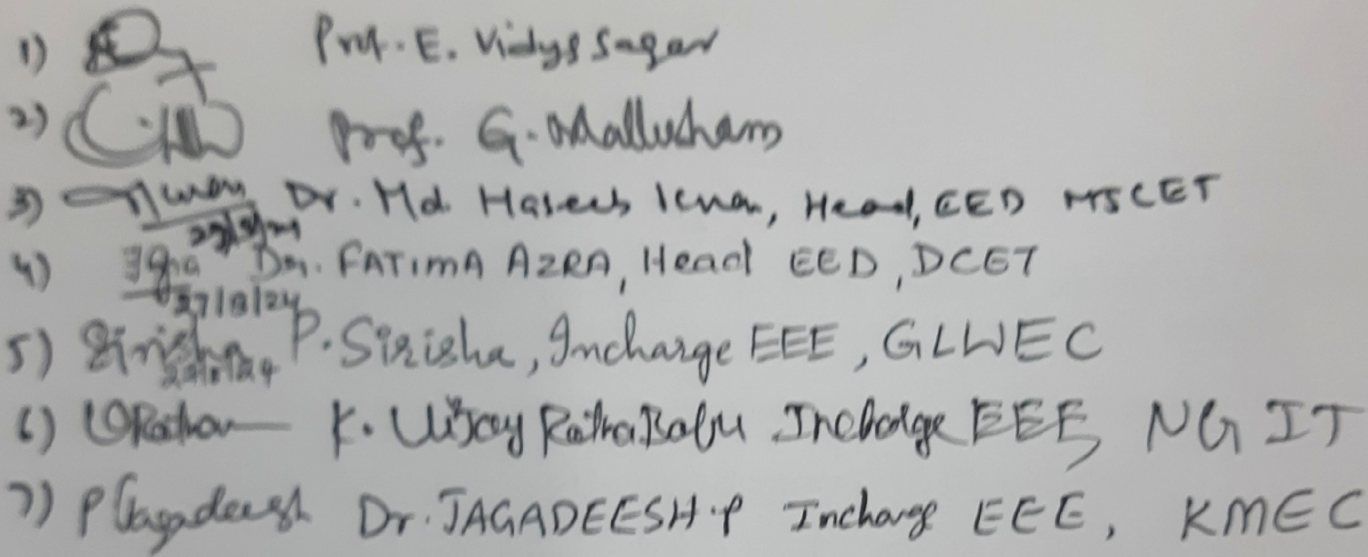 1) Prof. E. Vidya Sagar
2) Prof. G. Mallesham
3) Dr. Md Haseeb Khan, Head, EED MJCET
4) 27/8/24 Dr. FATIMA AZRA, Head EED, DCET
5) Sirisha P. Sirisha, Incharge EEE, GLWEC
6) K. Vijay Incharge EEE, NGIT
7) P Jagadeesh Dr. JAGADEESH.P Incharge EEE, KMEC